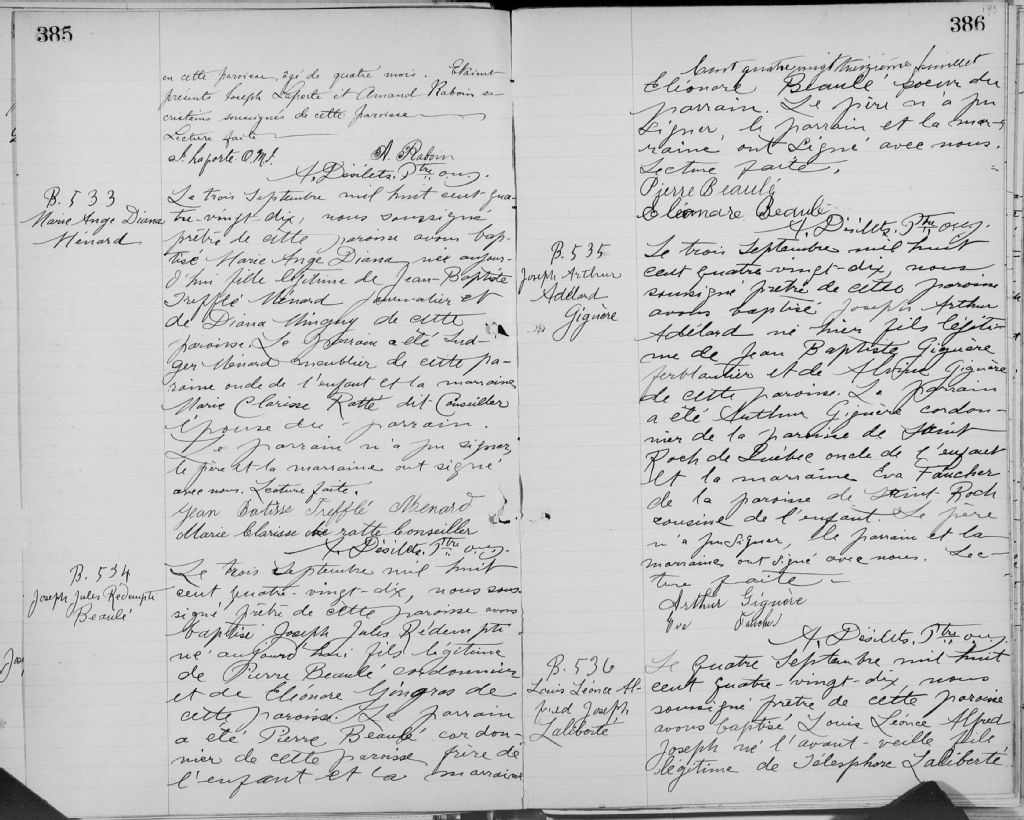 385
en cette paroisse, âgé de quatre mois. Étaient
présents Joseph Laporte et Amand Rabouin
soussignés de cette paroisse
Lecture faite
J. Laporte O.M.I. A. Rabouin
A. Désilets, Ptre
B. 533
Marie Ange Diana
Ménard
Le trois Septembre mil huit cent qua-
tre-vingt-dix, nous soussigné
prêtre de cette paroisse avons bap-
tisé Marie Ange Diana née aujour-
d'hui fille légitime de Jean-Baptiste
Trefflé Ménard journalier et
de Diana Mingny de cette
paroisse. Le parrain a été Lud-
ger Ménard meublier de cette pa-
roisse oncle de l'enfant et la marraine
Marie Clarisse Ratté dit Conseiller
épouse du parrain.
Le parrain n'a pu signer
le père et la marraine ont signé
avec nous. Lecture faite.
Jean Batisse Trefflé Menard
Marie Clarisse ratte Conseiller
A. Désilets, Ptre
B. 534
Joseph Jules Rédempti
Beaulé
Le trois Septembre mil huit
cent quatre-vingt-dix, nous sous-
signé prêtre de cette paroisse avons
baptisé Joseph Jules Rédempti
né aujourd'hui fils légitime
de Pierre Beaulé cordonnier
et de Eléonore Gingras de
cette paroisse. Le parrain
a été Pierre Beaulé cordon-
nier de cette paroisse frère de
l'enfant et la marraine
386
Cent quatre vingt treizième feuillet
Eléonore Beaulé soeur du
parrain. Le père n'a pu
signer, le parrain et la mar-
raine ont signé avec nous.
Lecture faite.
Pierre Beaulé
Eléonore Beaulé
A. Désilets, Ptre
B. 535
Joseph Arthur
Adélard
Giguère
Le trois Septembre mil huit
cent quatre-vingt-dix, nous
soussigné prêtre de cette paroisse
avons baptisé Joseph Arthur
Adélard né hier fils légiti-
me de Jean Baptiste Giguère
ferblantier et de Alvina Giguère
de cette paroisse. Le parrain
a été Arthur Giguère cordon-
nier de la paroisse de Saint
Roch de Québec oncle de l'enfant
et la marraine Eva Faucher
de la paroisse de Saint-Roch
cousine de l'enfant. Le père
n'a pu signer, le parrain et la
marraine ont signé avec nous. Lec-
ture faite
Arthur Giguère
Eva Faucher
A. Désilets, Ptre
B. 536
Louis Léonce Al-
fred Joseph
Laliberté
Le quatre Septembre mil huit
cent quatre-vingt-dix, nous
soussigné prêtre de cette paroisse
avons baptisé Louis Léonce Alfred
Joseph né l'avant-veille fils
légitime de Télesphore Laliberté